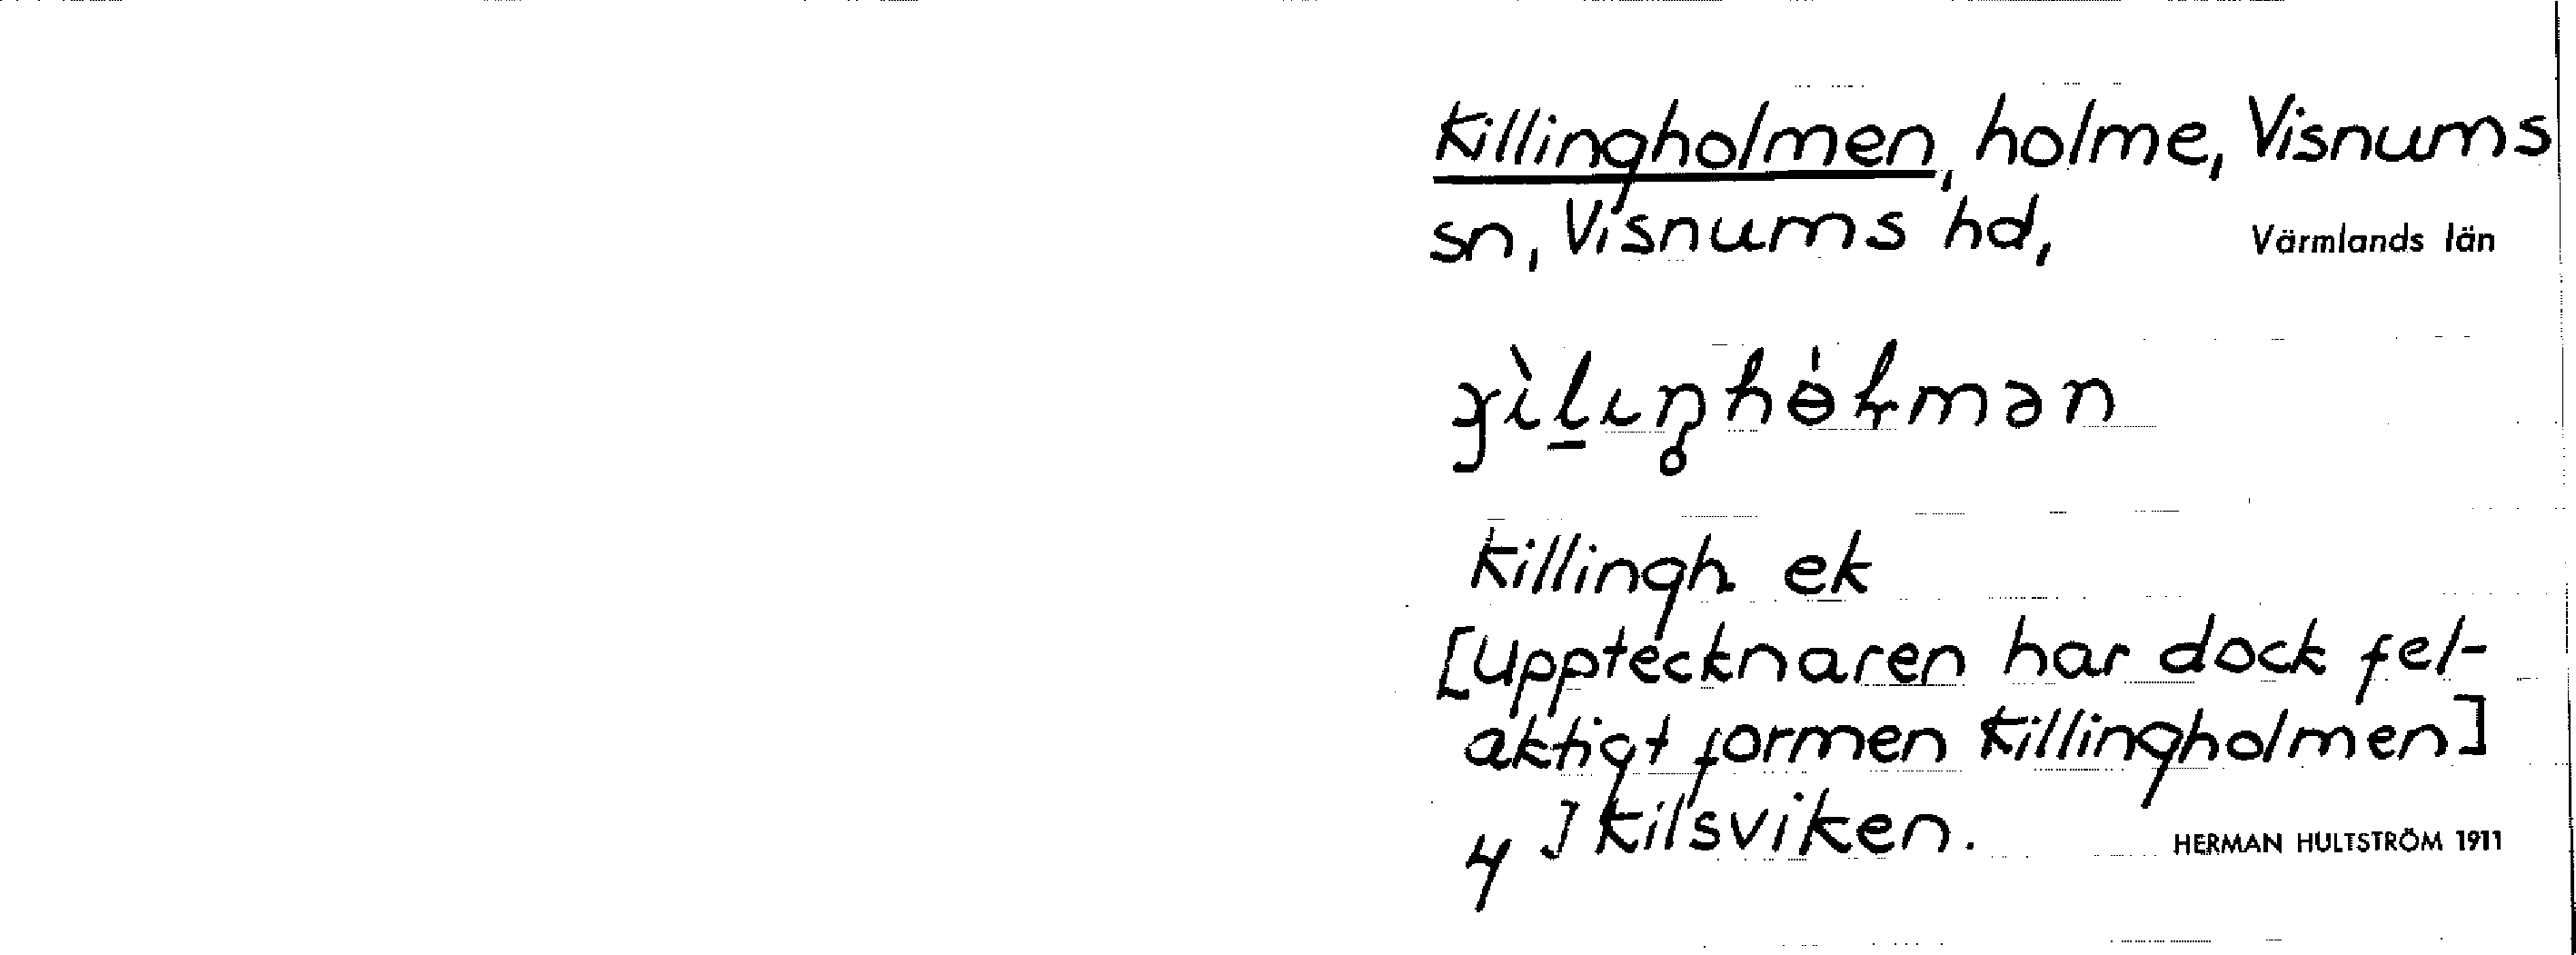 Killingholmen, holme, Visnums
sn, Visnums hd, Värmlands län
Killingh. ek
[Upptecknaren har dock fel-
aktigt formen Killingholmen]
4 I Kilsviken. HERMAN HULTSTRÖM 1911